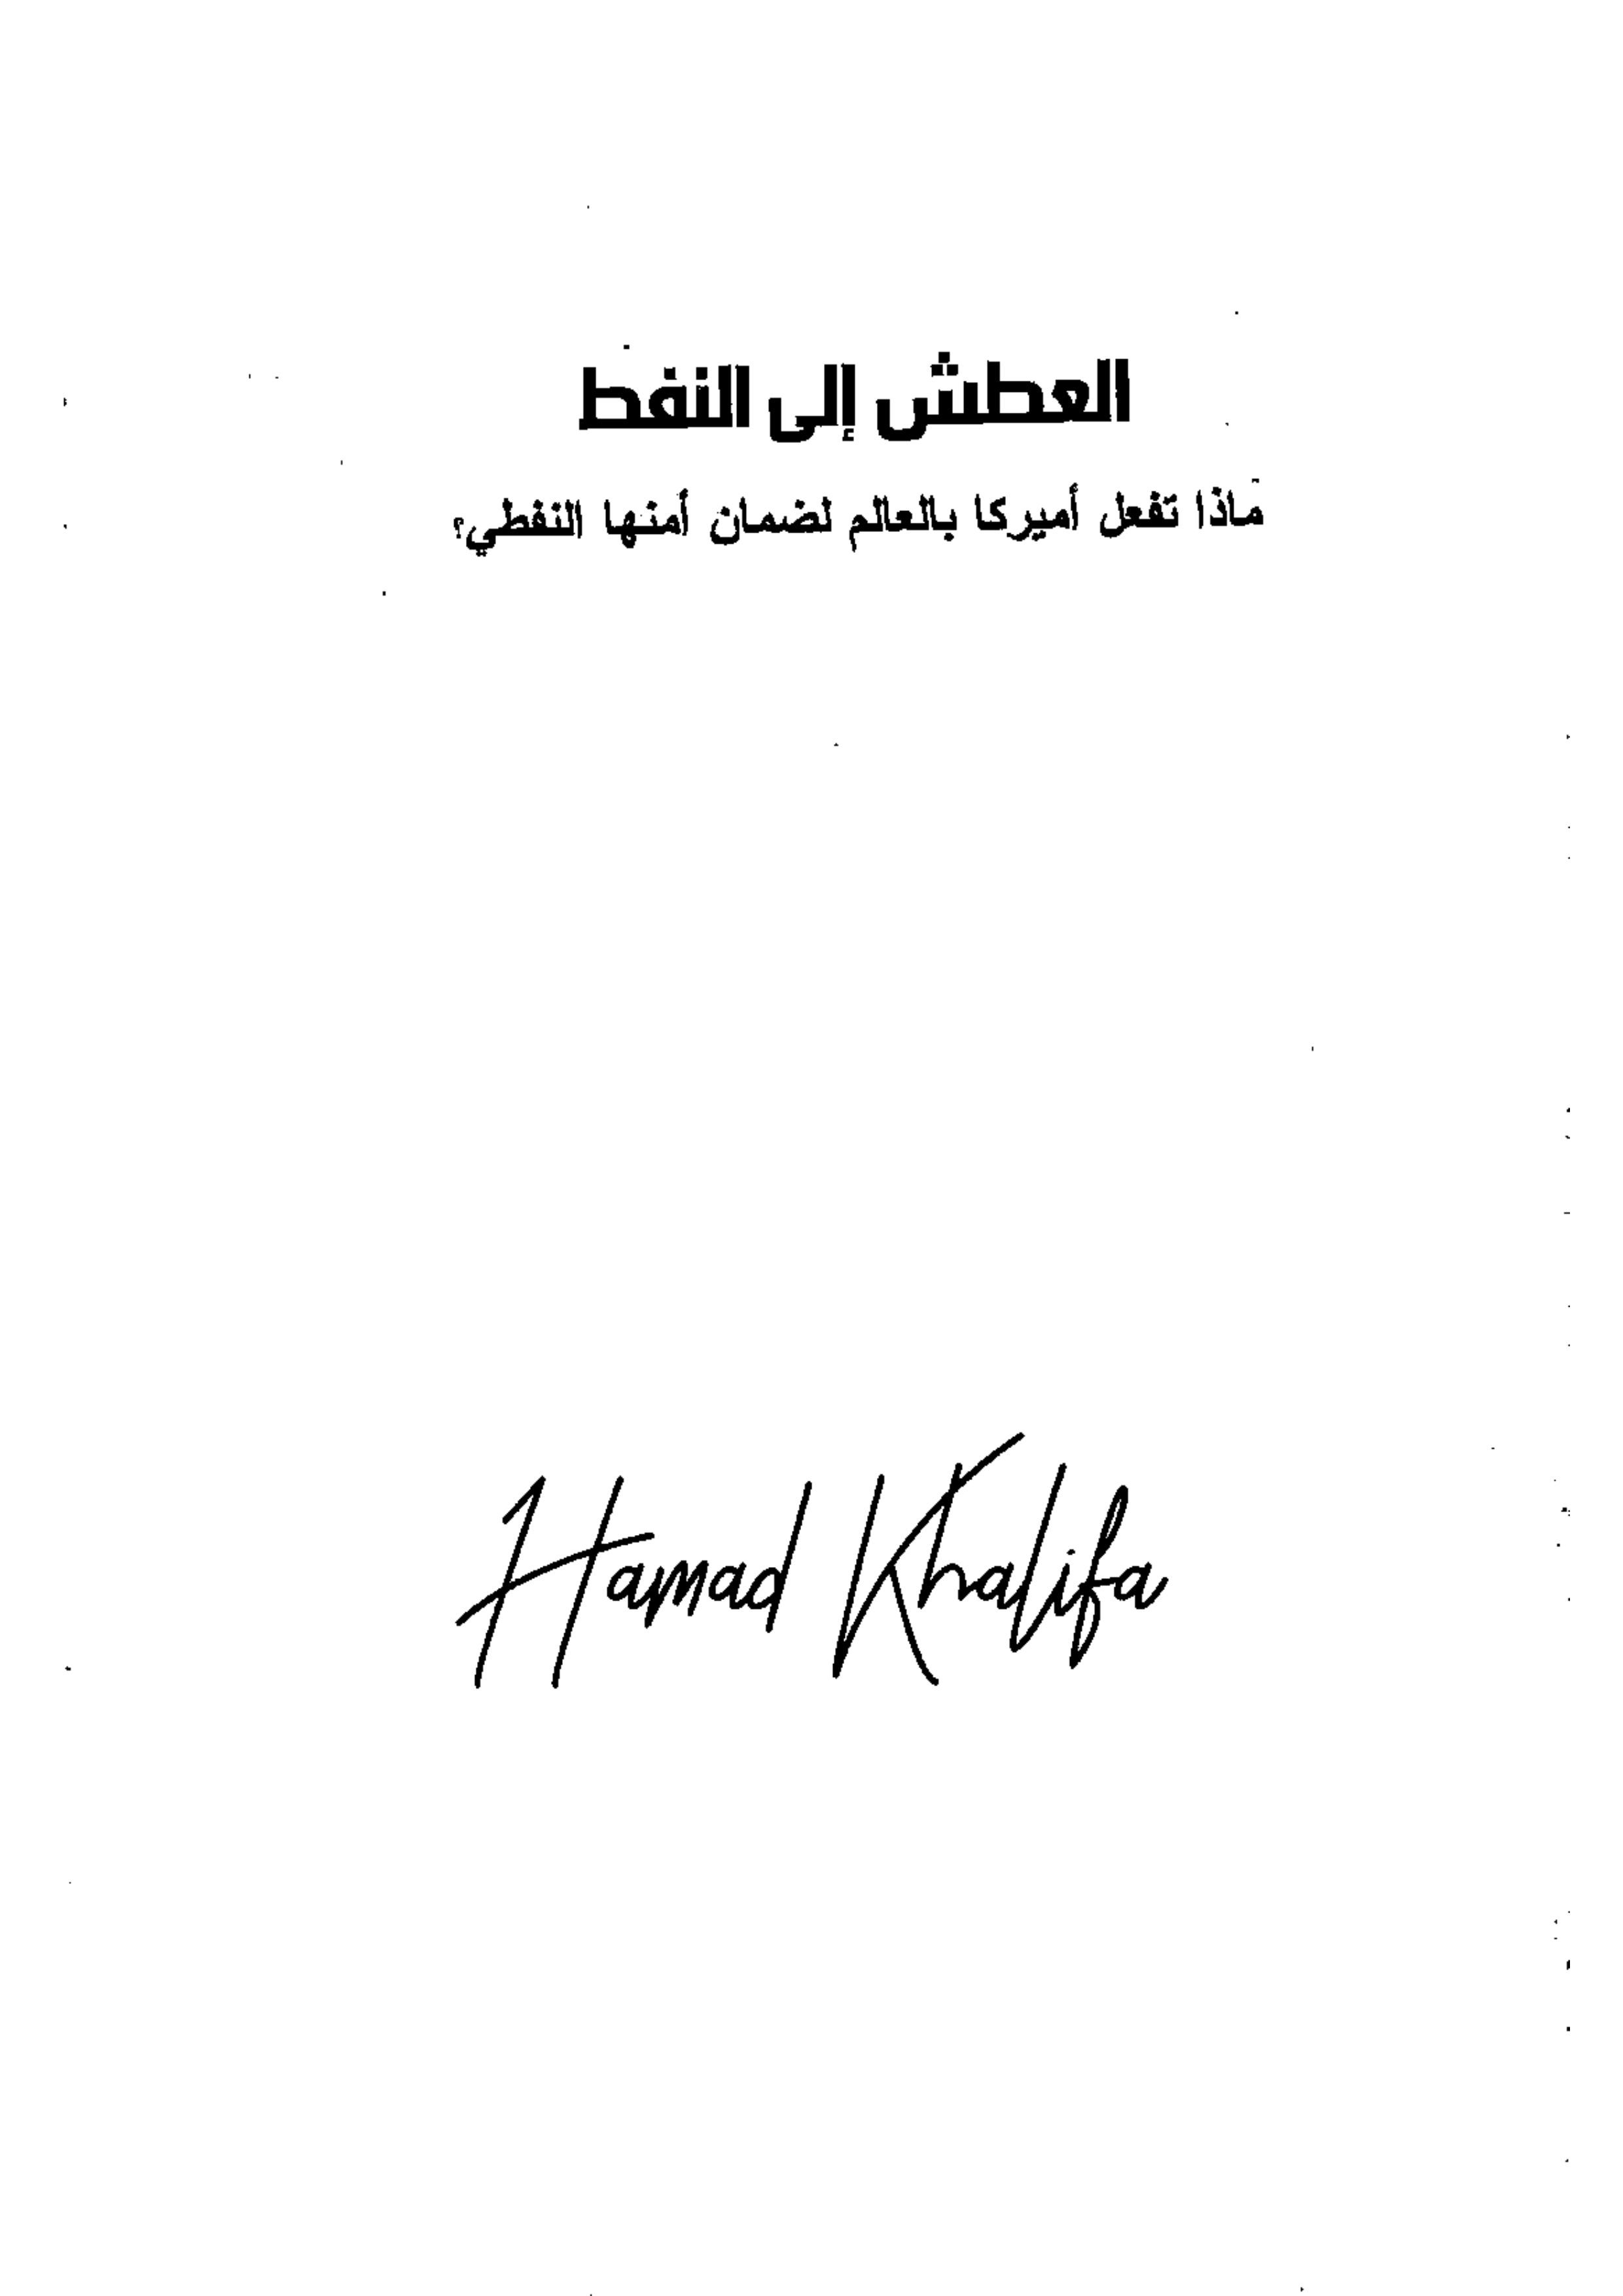 العطش إلى النفط
ماذا تفعل أميركا بالعالم لضمان أمنها النفطي؟
Hamad Khalifa